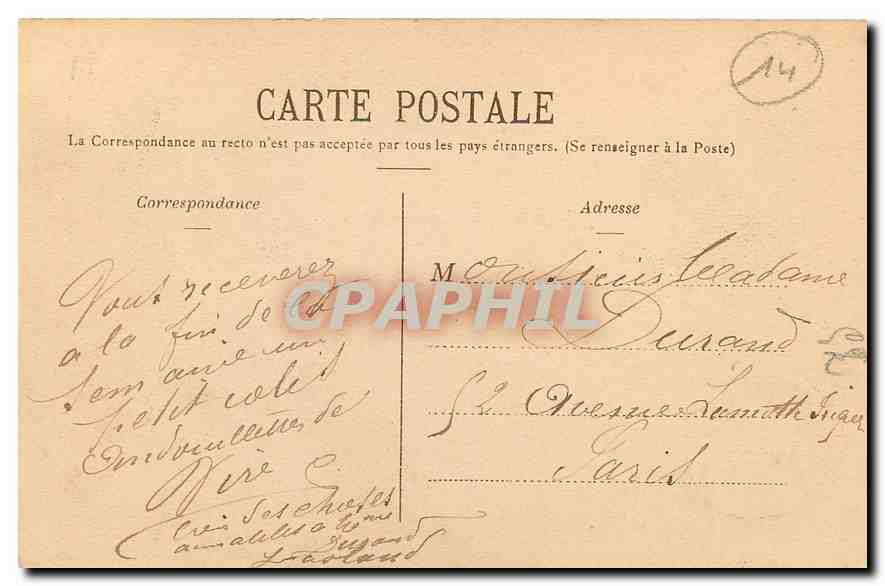 14
CARTE POSTALE
La Correspondance au recto n'est pas acceptée par tous les pays étrangers. (Se renseigner à la Poste)
Correspondance
Adresse
Vous recevrez
a la fin de la
semaine un
petit colis
Andouillettes de
Vire
Durand
Monsieur Madame
Durand
52 Avenue Lamotte
Paris
CPAPHIL